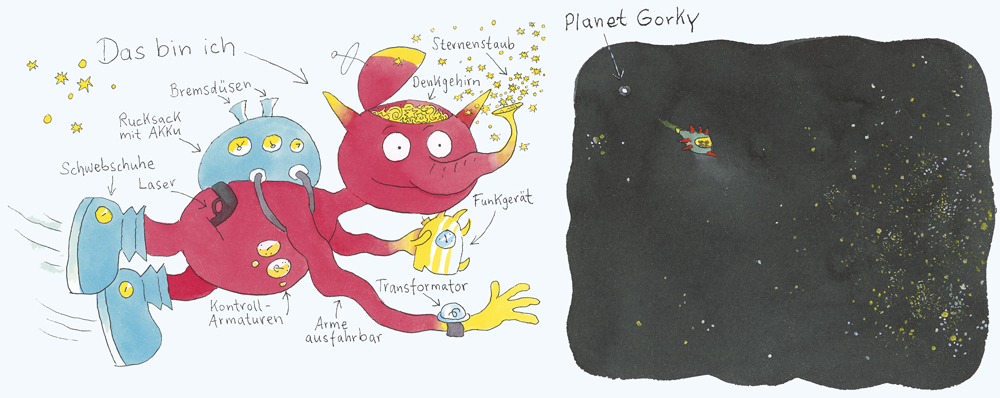 Das bin ich
Sternenstaub
Bremsdüsen
Denkgehirn
Rucksack
mit AKKu
Schwebschuhe
Laser
Funkgerät
Transformator
Kontroll-
Armaturen
Arme
ausfahrbar
Planet Gorky